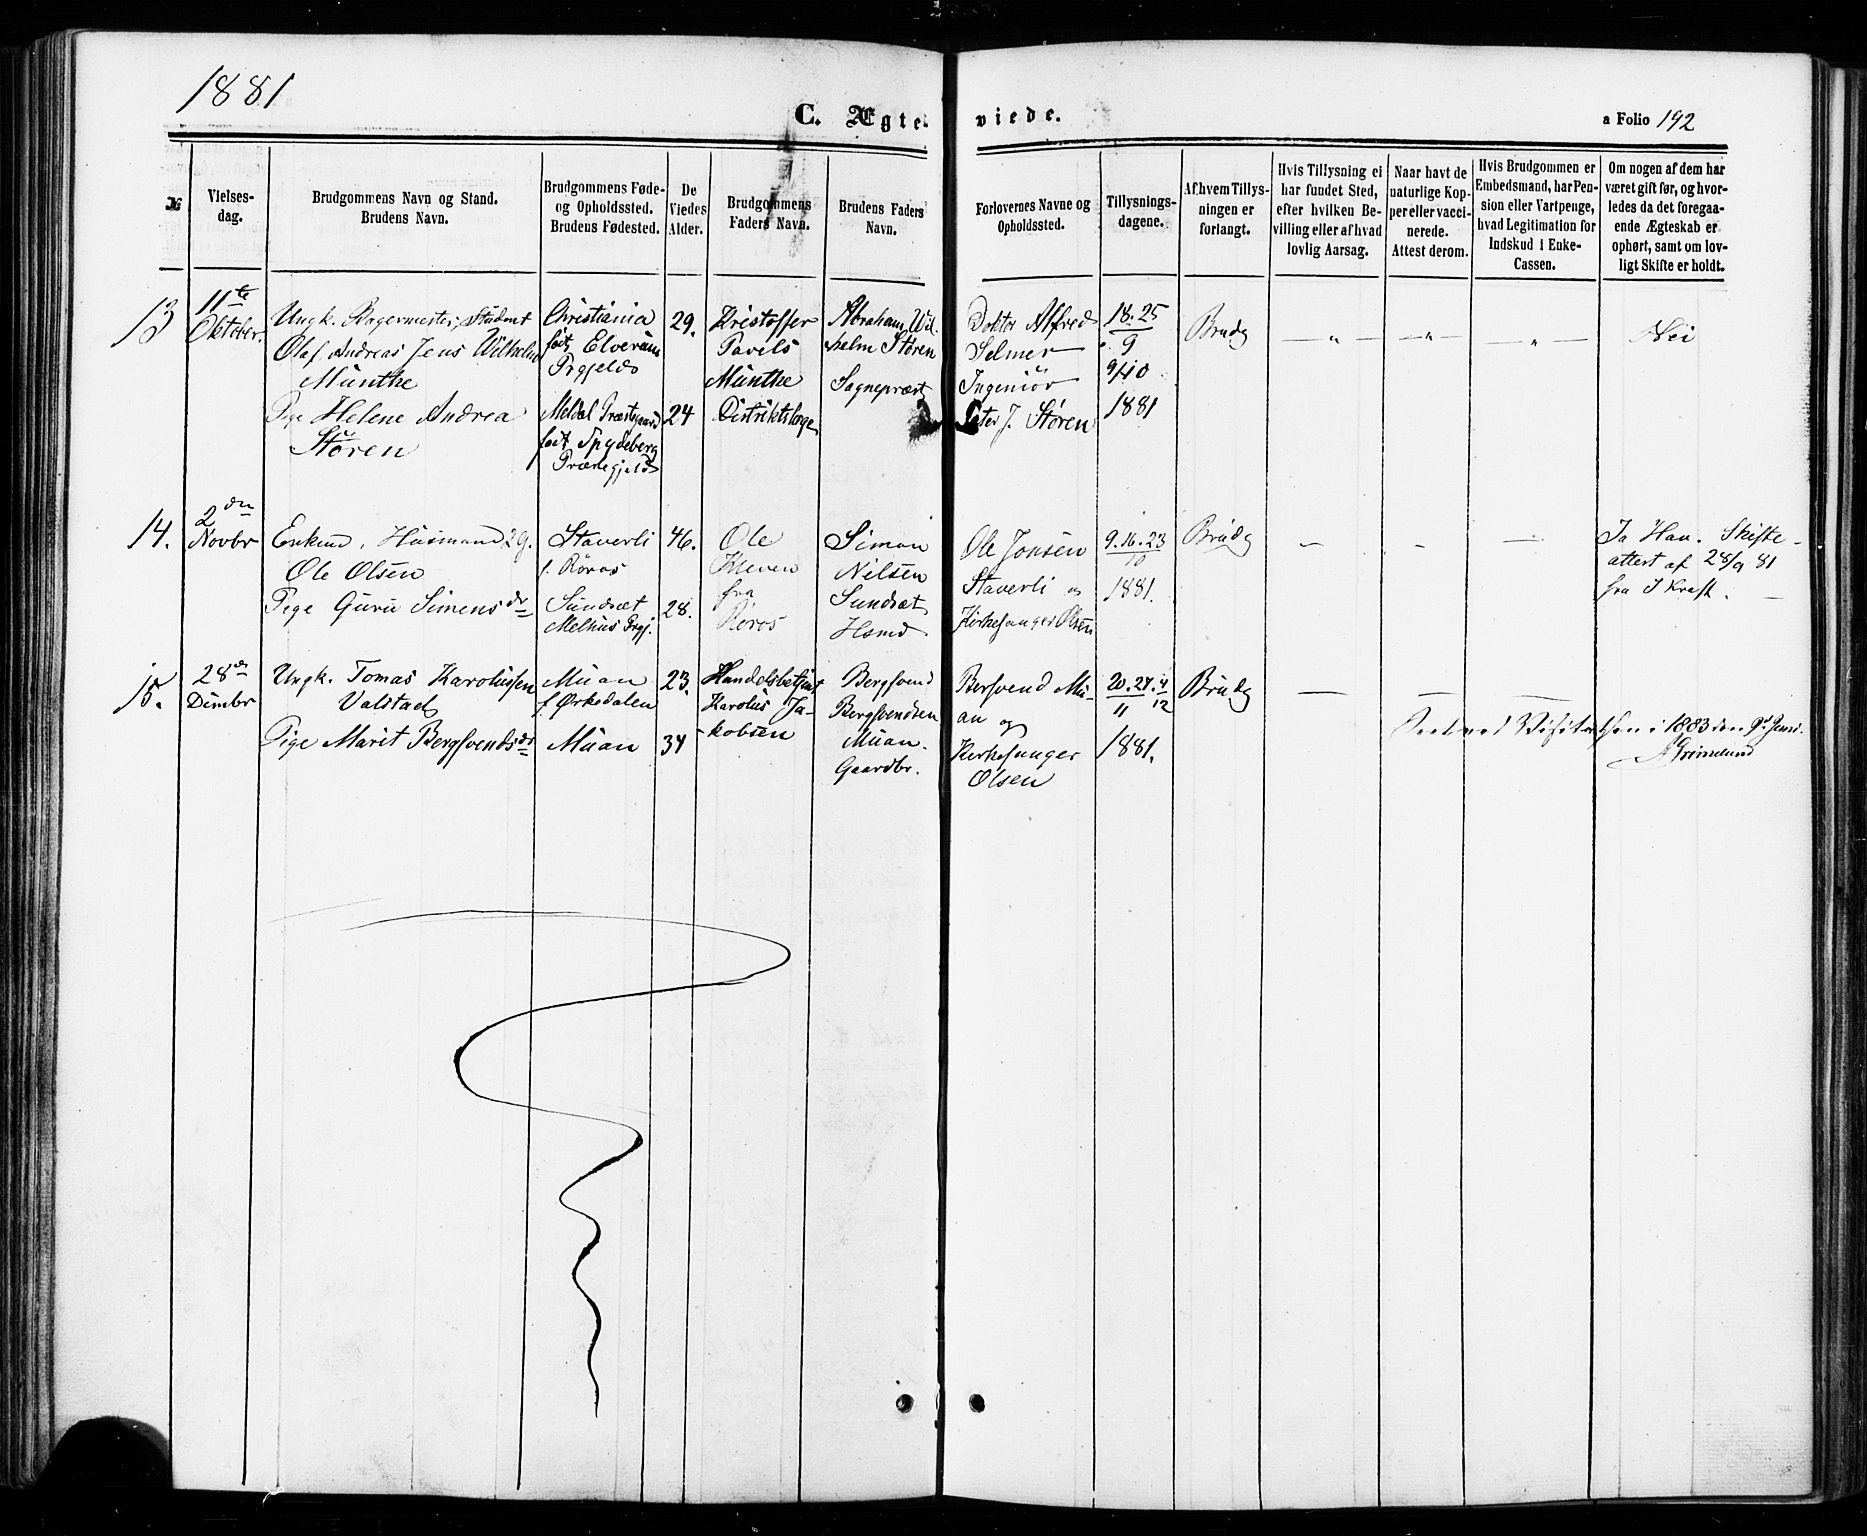 1881
C. Ægte- viede.
a Folio 192
№
Vielses-
dag.
Brudgommens Navn og Stand.
Brudens Navn.
Brudgommens Føde-
og Opholdssted.
Brudens Fødested.
De
Viedes
Alder.
Brudgommens
Faders Navn.
Brudens Faders
Navn.
Forlovernes Navne og
Opholdssted.
Tillysnings-
dagene.
Af hvem Tillys-
ningen er
forlangt.
Hvis Tillysning ei
har fundet Sted,
efter hvilken Be-
villing eller af hvad
lovlig Aarsag.
Naar havt de
naturlige Kop-
per eller vacci-
nerede.
Attest derom.
Hvis Brudgommen er
Embedsmand, har Pen-
sion eller Vartpenge,
hvad Legitimation for
Indskud i Enke-
Cassen.
Om nogen af dem har
været gift før, og hvor-
ledes da det foregaa-
ende Ægteskab er
ophørt, samt om lov-
ligt Skifte er holdt.
13
11te
Oktober.
Ungk. Student
Olaf Andreas Jens Wilhelm
Munthe
Pige Helene Andrea
Støren
Christiania
født Elverum
Prgjeld
Meldal Præstegaard
født Spydeberg
Præstegjeld
29.
24
Kristoffer
Pavels
Munthe
Distriktslæge
Abraham Wil-
helm Støren
Sognepræst
Doktor Alfred
Selmer
Ingeniør
Peter J. Støren
18. 25
9
9/10
1881
Brudg
— „ —
— „ —
— „ —
Nei
14.
2den
Novbr
Enkem. Husmand
Ole Olsen
Pige Guru Simensdr
Staverli
f. Røros
Sundsæt
Melhus Prgj.
46.
28.
Ole
Kleven
fra
Røros
Simon
Nilsen
Sundsæt
Hsmd
Ole Jonsen
Staverli og
Kirkesanger Olsen
9. 16. 23
10
1881.
Brudg
—
—
—
Ja Han. Skifte-
attest af 28/9 81
fra
15.
28de
Dcmbr
Ungk. Tomas Karolussen
Valstad
Pige Marit Bergsvendsdr
Muan
f. Ørkedalen
Muan
23.
34
Handelsbetjent
Karolus Ja-
kobsen
Bergsvend
Bergsvendsen
Muan.
Gaardbr.
Bersvend Mu-
an og
Kirkesanger
Olsen
20. 27. 4
11 12
1881.
Brudg
—
—
—
Seet ved Visitatsen i 1883 den 9de Juni.
A Grimelund